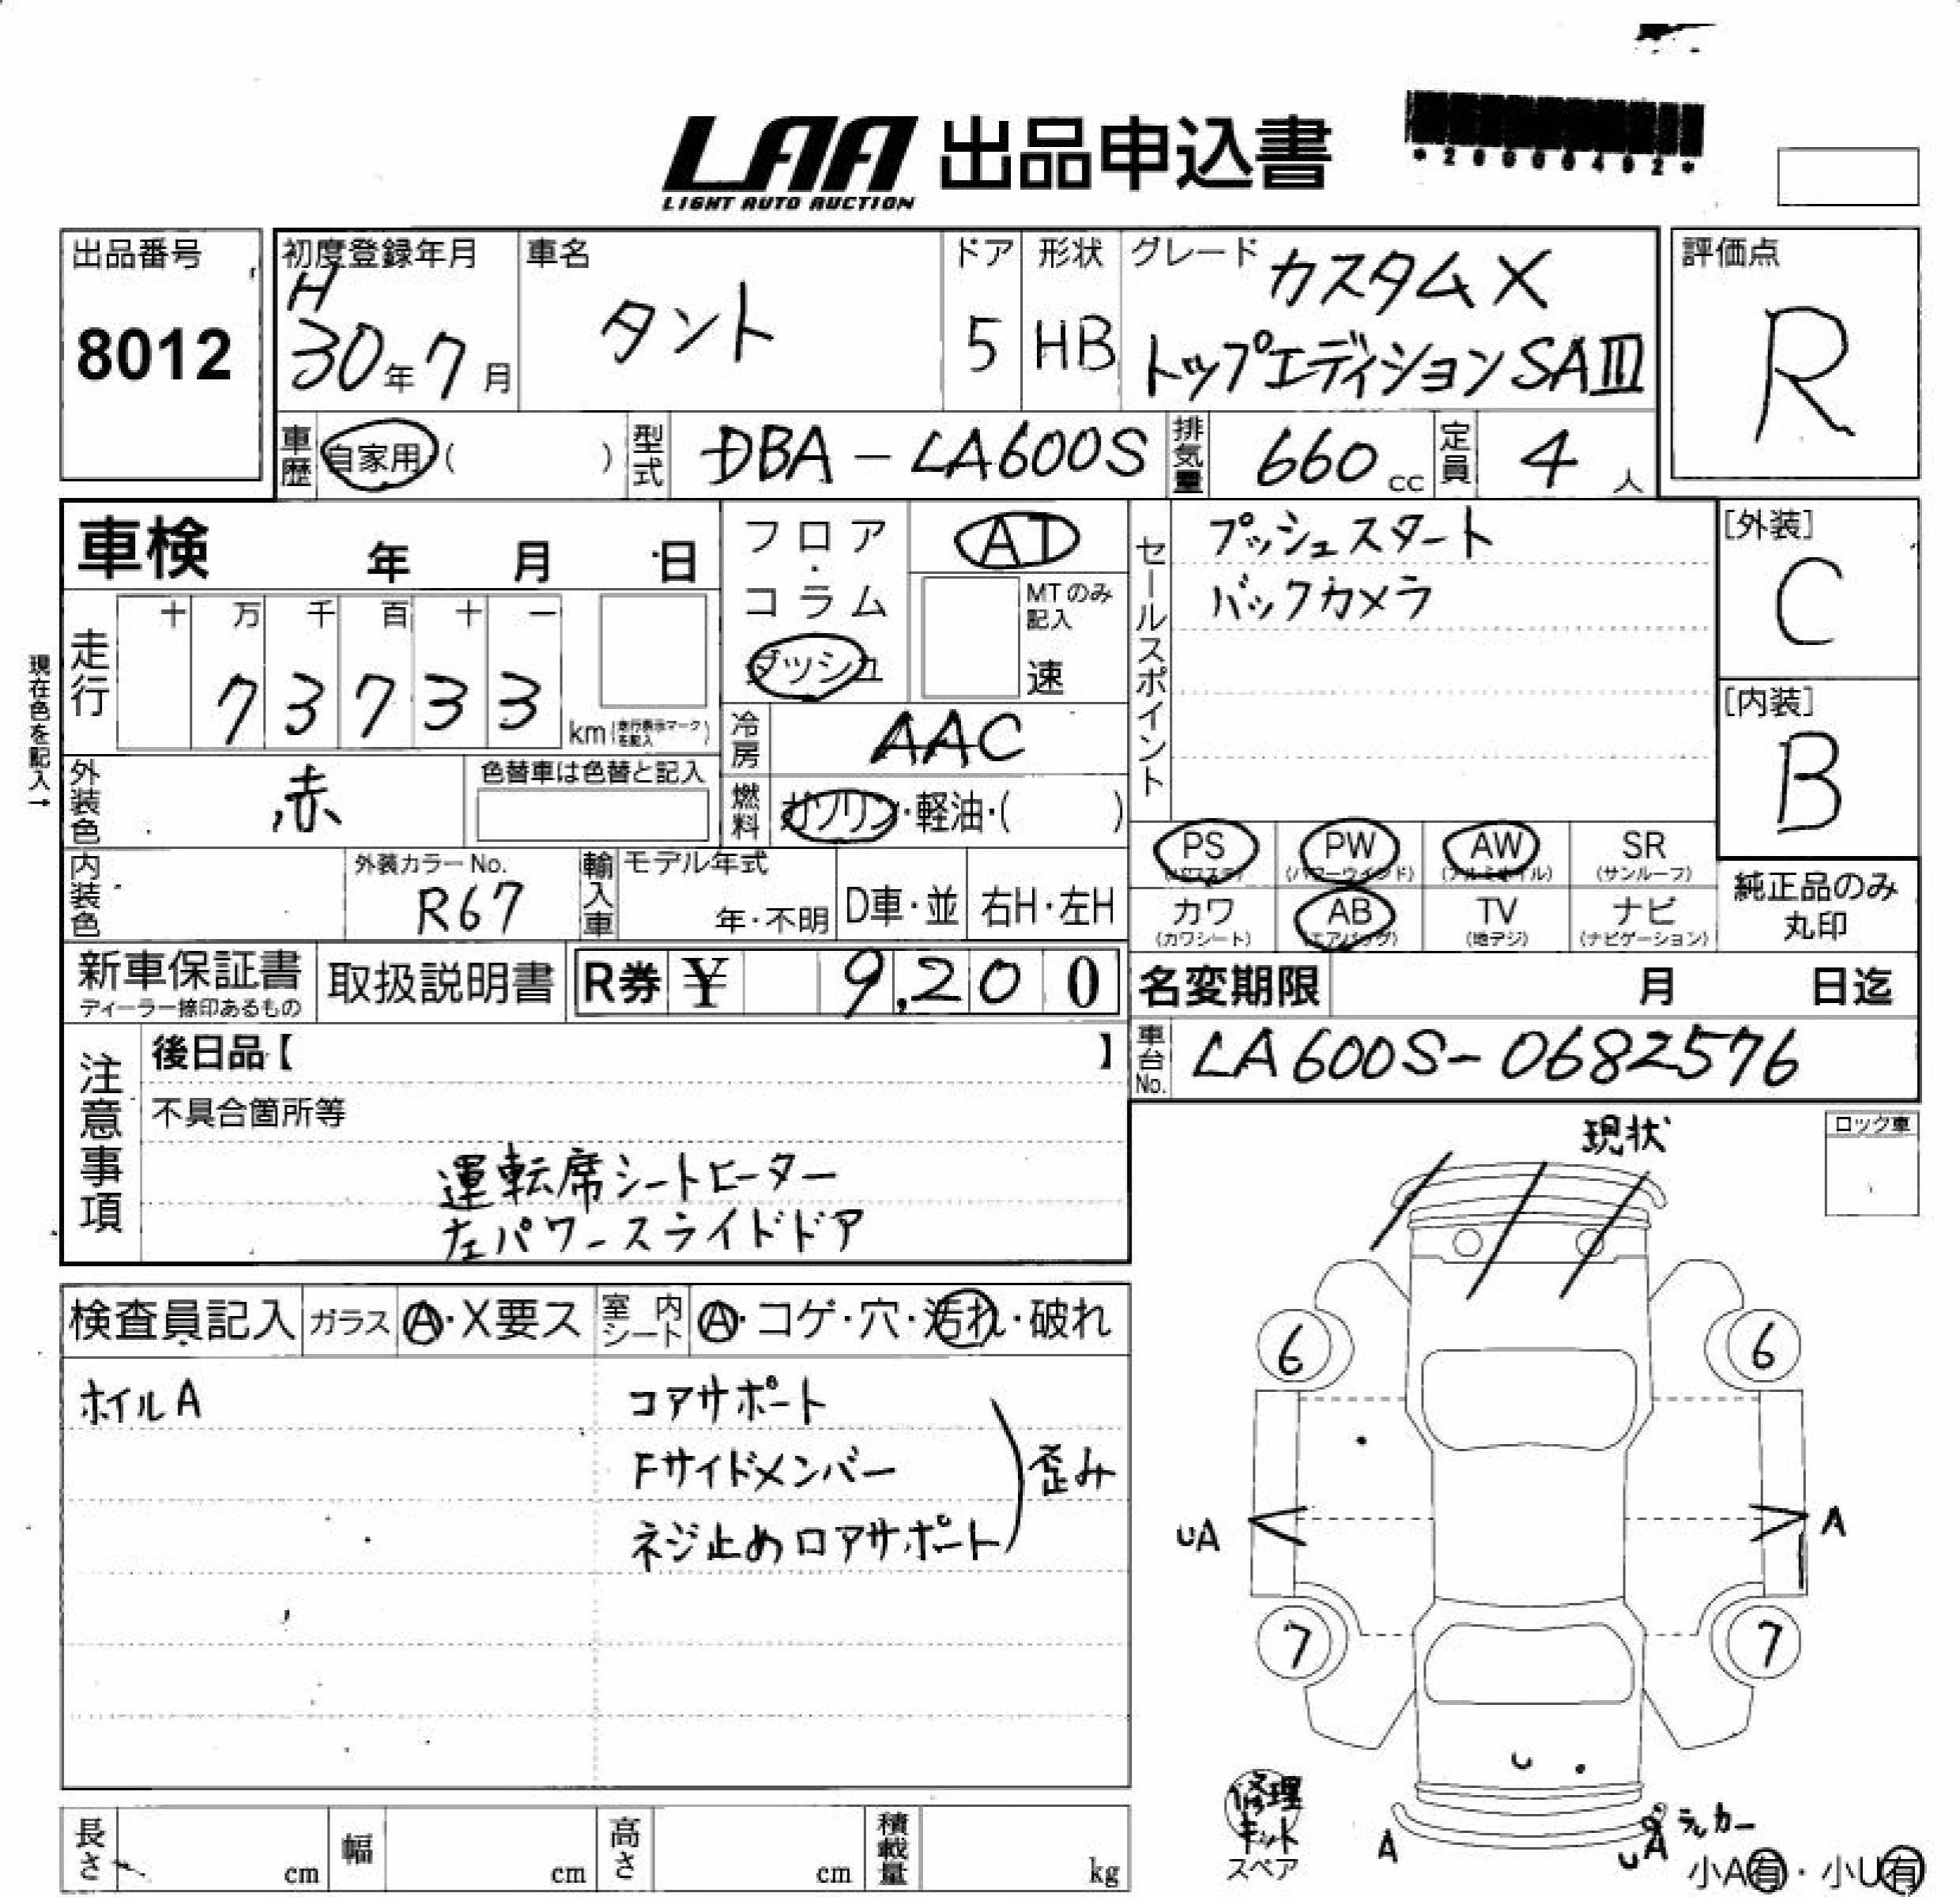 LAA 出品申込書
LIGHT AUTO AUCTION
出品番号
8012
初度登録年月
H
30年7月
車名
タント
ドア
5
形状
HB
グレード カスタムX
トップエディションSAⅢ
評価点
R
車歴 自家用 ( )
型式 DBA-LA600S
排気量 660 cc
定員 4 人
車検 年 月 日
走行
十 万 千 百 十 一
7 3 7 3 3
km
現在色を記入→
フロア・
コラム
ダッシュ
AT
MTのみ
記入
速
冷房 AAC
燃料 ガソリン・軽油・( )
セールスポイント
プッシュスタート
バックカメラ
[外装]
C
[内装]
B
外装色 赤
色替車は色替と記入
内装色
外装カラーNo.
R67
輸入車
モデル年式
年・不明
D車・並
右H・左H
PS
(パワステ)
PW
(パワーウインド)
AW
(アルミホイル)
SR
(サンルーフ)
カワ
(カワシート)
AB
(エアバッグ)
TV
(地デジ)
ナビ
(ナビゲーション)
純正品のみ
丸印
新車保証書
取扱説明書
R券 ¥ 9,200
名変期限 月 日迄
車台No. LA600S-0682576
注意事項
後日品【 】
不具合箇所等
運転席シートヒーター
左パワースライドドア
検査員記入
ガラス Ⓐ・X要ス
室内シート Ⓐ・コゲ・穴・汚れ・破れ
ホイルA
コアサポート
Fサイドメンバー
ネジ止めロアサポート
歪み
現状
ロック車
6
6
UA
A
7
7
U
修理
キット
スペア
A
UA
小A有・小U有
長さ cm
幅 cm
高さ cm
積載量 kg